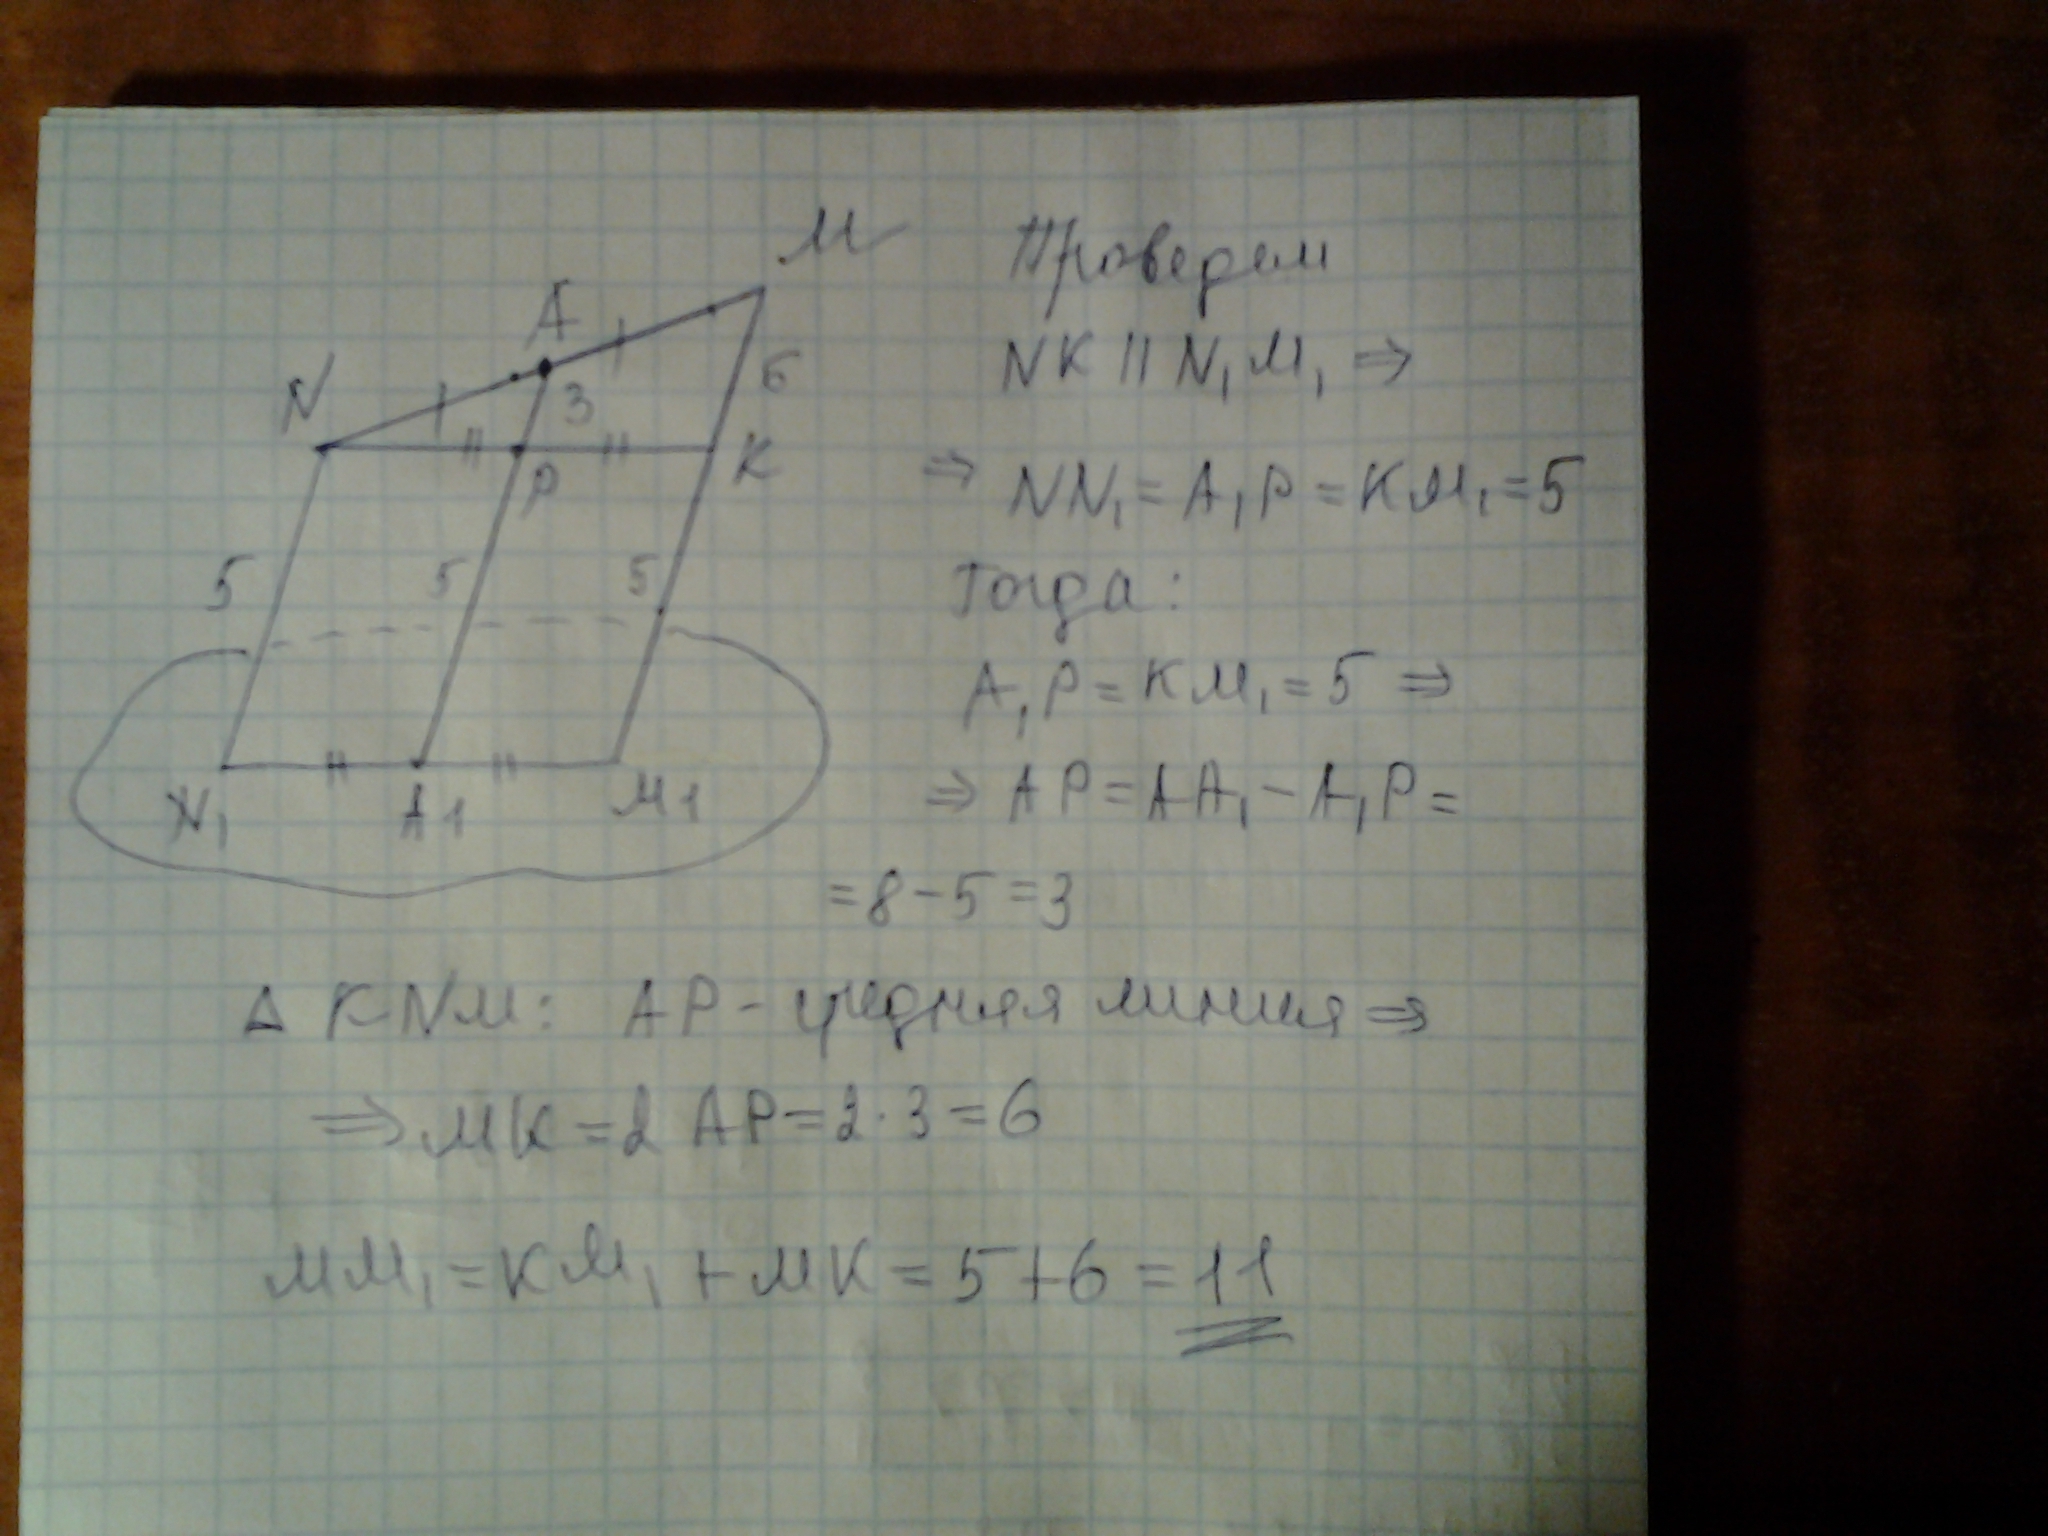 M
A
N
3
6
P
K
5 5 5
N₁ A1 M1
Проведем
NK || N₁M₁ ⇒
⇒ NN₁ = A₁P = KM₁ = 5
Тогда:
A₁P = KM₁ = 5 ⇒
⇒ AP = AA₁ - A₁P =
= 8 - 5 = 3
Δ KNM: AP - средняя линия ⇒
⇒ MK = 2 AP = 2 · 3 = 6
MM₁ = KM₁ + MK = 5 + 6 = 11